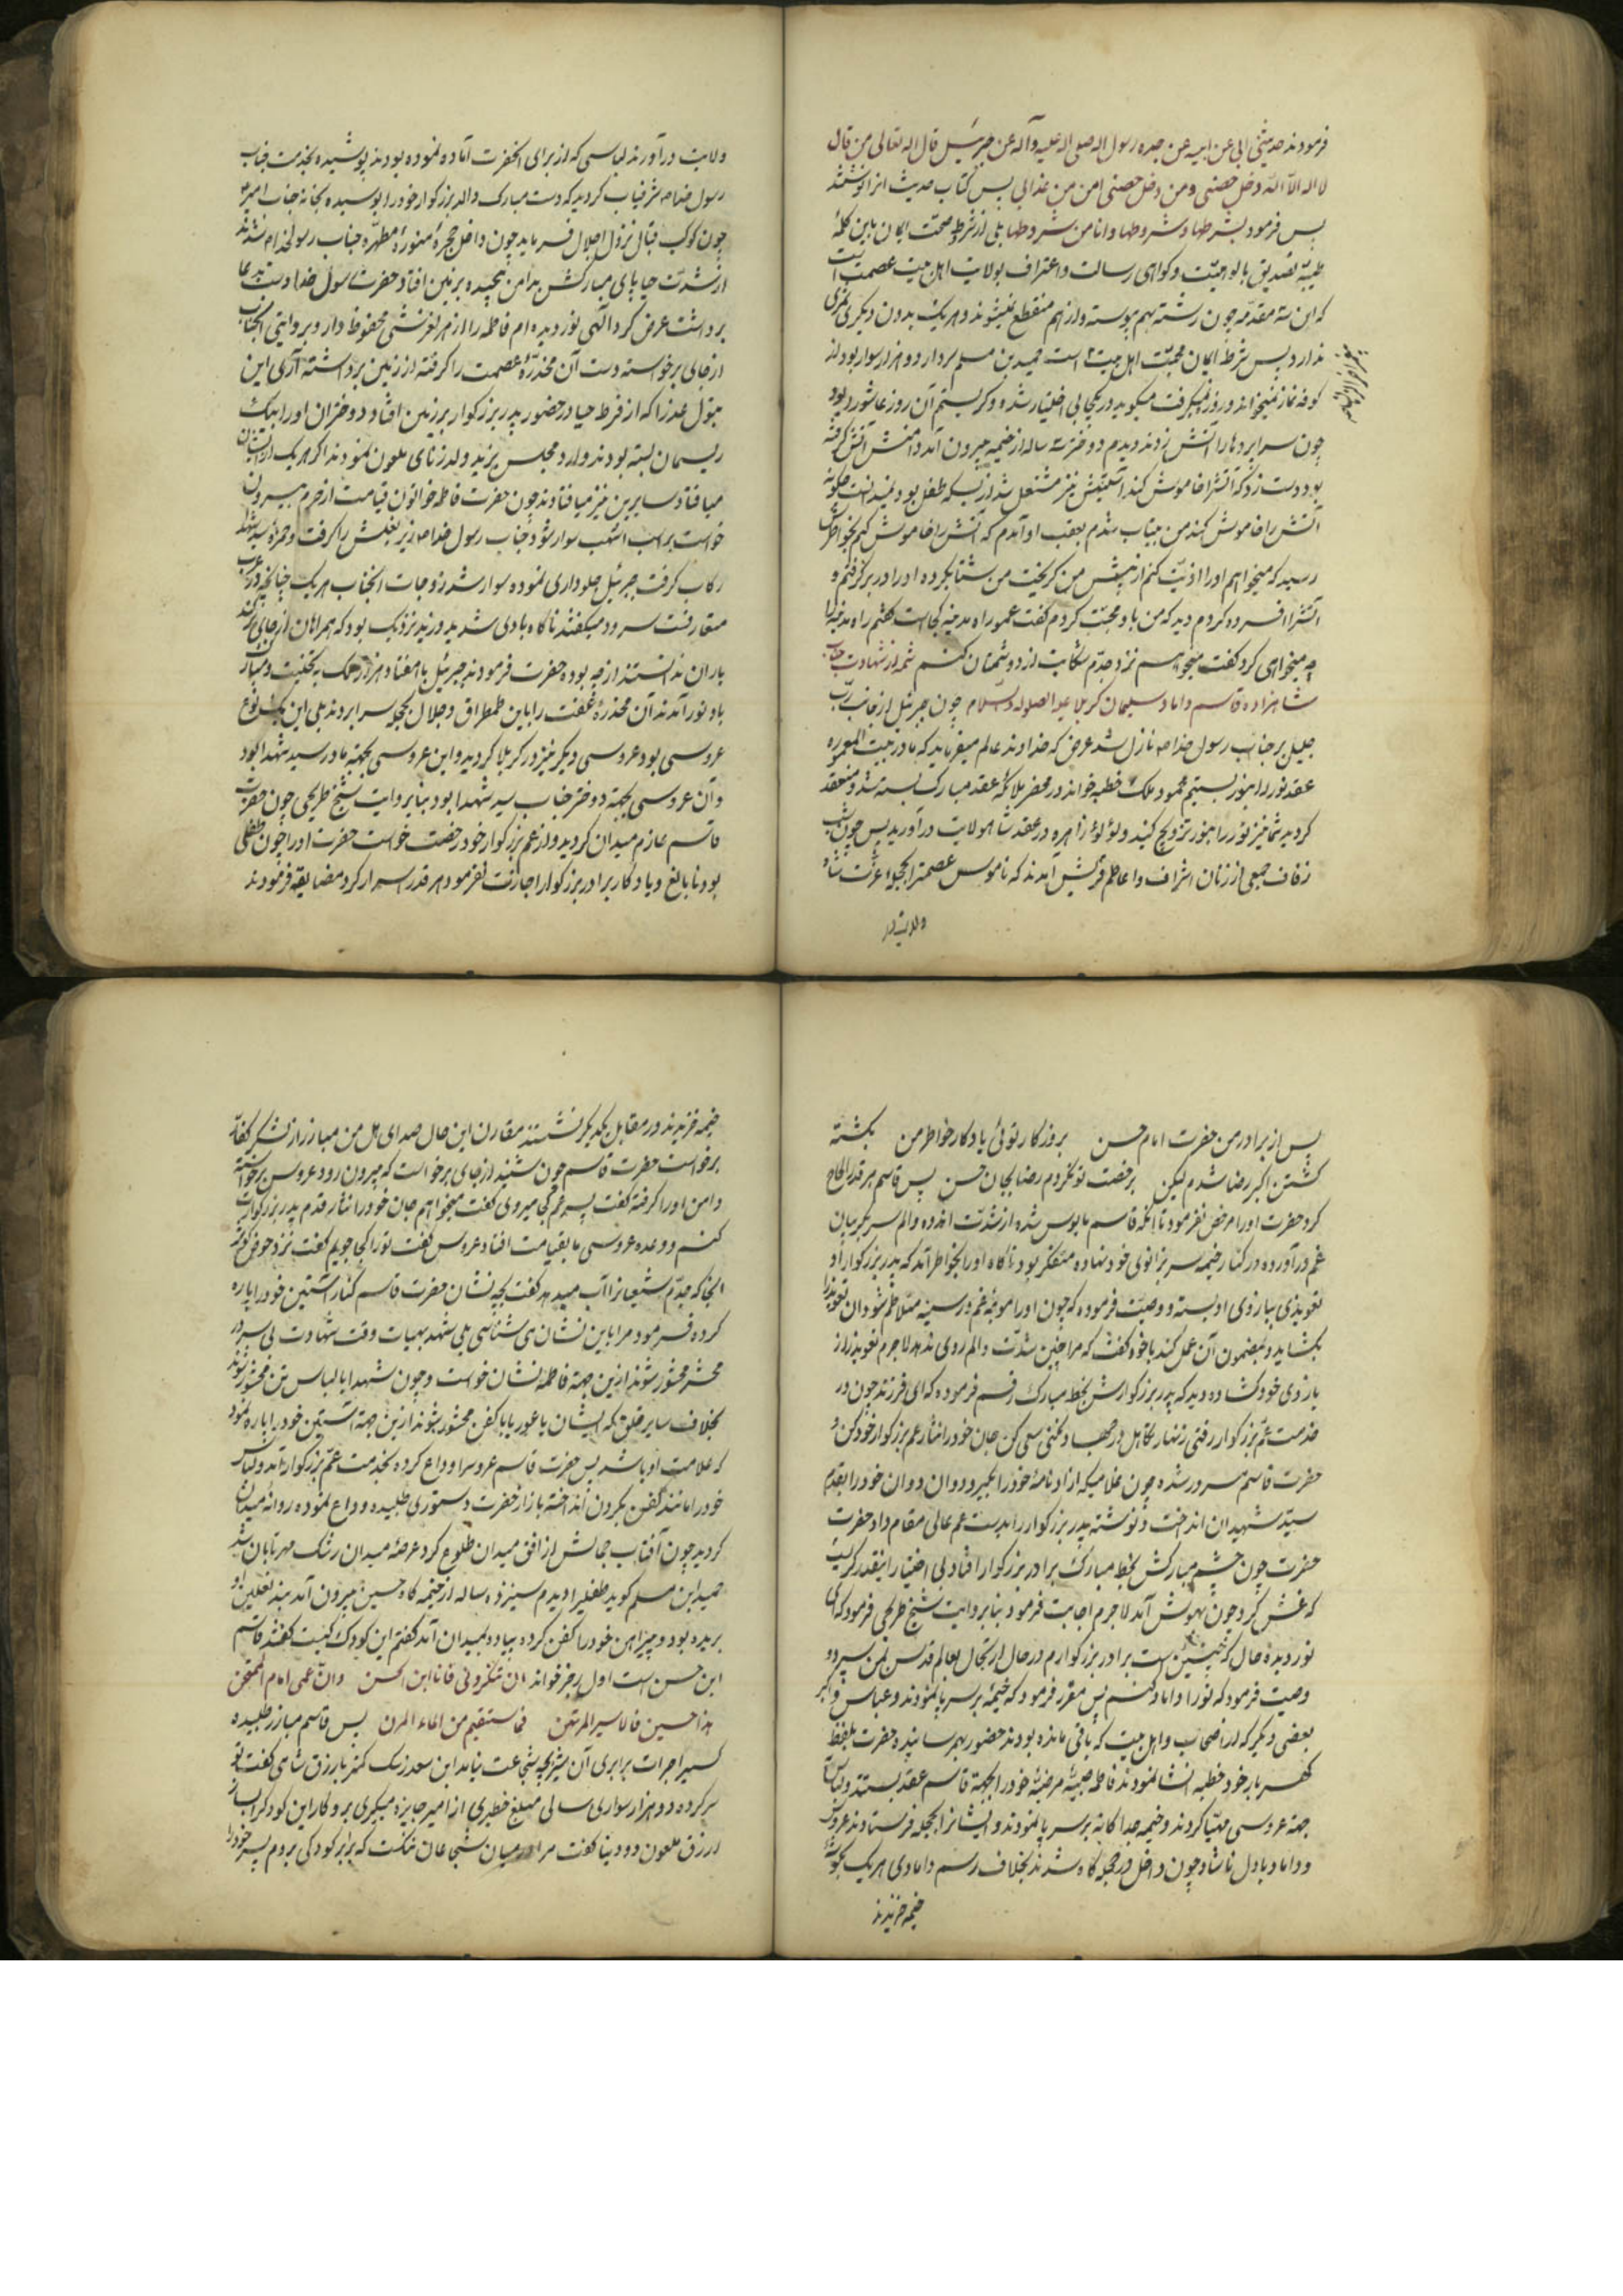 فرمودند حدیثی ابی عن ابیه عن جده رسول اله صلی اله علیه وآله عن جبرئیل قال اله تعالی من قال
لا اله الا الله دخل حصنی ومن دخل حصنی امن من عذابی پس کتاب حدیث انرا نوشتند
پس فرمود بشرطها وشروطها وانا من شروطها بلی از شرط صحت ایمان باین کلمهٔ
طیبه تصدیق بالوهیت وکواهی رسالت واعتراف بولایت اهل بیت عصمت است
که این سه مقدمه چون رشته بهم پیوسته واز هم منقطع نمیشوند وهریک بدون دیکری ثمری
ندارد پس شرط ایمان محبت اهل بیت است حمید بن مسلم سردار دو هزار سوار بود در
کوفه نماز میخواند وروزه میکرفت میکوید در یکجا بی اختیار شده وکریستم آن روز عاشورا بود
چون سرا پردها را آتش زدند دیدم دختر سه ساله از خیمه بیرون آمد دامنش آتش کرفته
بود دست زد که آتشرا خاموش کند آستینش نیز مشتعل شد از بسکه طفل بود نمیدانست چکونه
آتش را خاموش کند من بیتاب شدم بعقب او آمدم که آتش را خاموش کنم بخواطرش
رسید که میخواهم او را اذیت کنم از پیش من کریخت من شتاب کرده او را در برکرفتم و
آتشرا افسرده کردم دید که من باو محبت کردم کفت عمو راه مدینه کجاست کفتم راه مدینه را
چه میخواهی کرد کفت میخواهم نزد جدم شکایت از دشمنان کنم شمه از شهادت جناب
شاهزاده قاسم داماد سلیمان کربلا علیه الصلوة والسلام چون جبرئیل از جانب رب
جلیل بر جناب رسول خدا ص نازل شد عرض که خداوند عالم میفرماید که ما در بیت المعموره
عقد نور را بنور بستیم محمود ملک خطبه خواند در محضر ملائکه عقد مبارک بسته شد ومنعقد
کردید شما نیز نور را بنور تزویج کنید ولؤلؤ زاهره در عقد شاه ولایت درآورید پس چون شب
زفاف جمعی از زنان اشراف واعاظم قریش آمدند که ناموس عصمترا بحجله عزت شاه
ولایت در
ولایت درآورند لباسی که از برای آنحضرت آماده نموده بودند پوشیده بخدمت جناب
رسول خدا ص شرفیاب کردید که دست مبارک والد بزرکوار خود را بوسیده بخانه جناب امیر
چون کوکب قبال نزول اجلال فرماید چون داخل حجرهٔ منورهٔ مطهره جناب رسولخدا ص شدند
از شدت حیا پای مبارکش بدامن پیچیده بر زمین افتاد حضرت رسول خدا دست بدعا
برداشت عرض کرد الهی نور دیده ام فاطمه را از هر لغزشی محفوظ دار وبروایتی آنجناب
از جای برخواسته دست آن مخدرهٔ عصمت را کرفته از زمین برداشته آری این
بتول عذرا که از فرط حیا در حضور پدر بزرکوار بر زمین افتاد دختران او را بیک
ریسمان بسته بودند وارد مجلس یزید ولد زنای ملعون نمودند اکر هریک از ایشان
میافتاد سایرین نیز میافتادند چون حضرت فاطمه خواتون قیامت از حرم بیرون
خواست بر اسب اشهب سوار شود جناب رسول خدا ص زیر بغلش را کرفت وحمزه سید شهدا
رکاب کرفت جبرئیل جلوداری نموده سوار شد زوجات آنجناب هریک چنانچه در عرب
متعارفست سرود میکفتند ناکاه بادی شدید وزید نزدیک بود که همراهان از جای برکند
یاران ندانستند از چه بوده حضرت فرمودند جبرئیل با هفتاد هزار ملک به تهنیت ومبارک
باد نور آمدند آن مخدرهٔ عفت را باین طمطراق وجلال بحجله سرا بردند بلی این یک نوع
عروسی بود عروسی دیکر نیز در کربلا کردید واین عروسی بجهة مادر سید شهدا بود
وآن عروسی بجهة دختر جناب سید شهدا بود بنا بروایت شیخ طریحی چون حضرت
قاسم عازم میدان کردید واز عم بزرکوار خود رخصت خواست حضرت او را چون طفلی
بود نابالغ ویادکار برادر بزرکوار اجازت نفرمود هر قدر اسرار کرد مضایقه فرمودند
پس از برادر من حضرت امام حسن بروزکار توئی یادکار خواطر من بکشته
کشتن اکبر رضا شدم لیکن برخصت تو نکردم رضا بجان حسن پس قاسم هر قدر الحاح
کرد حضرت او را مرخص نفرمود تا آنکه قاسم مایوس شده از شدت اندوه والم سر بکریبان
غم درآورده در کنار خیمه سر بزانوی خود نهاده متفکر بود ناکاه او را بخواطر آمد که پدر بزرکوار او
تعویذی ببازوی او بسته ووصیت فرموده که چون او را موجهٔ غم در سینه متلاطم شود آن تعویذ را
بکشاید وبمضمون آن عمل کند با خود کفت که مرا چنین شدت والم روی نداده لاجرم تعویذ را از
بازوی خود کشاده دید که پدر بزرکوارش بخط مبارک رقم فرموده که ای فرزند چون در
خدمت عم بزرکوار رفتی زنهار تکاهل در جهاد نکنی سعی کن جان خود را نثار عم بزرکوار خود کن و
حضرت قاسم مسرور شده چون غلامیکه آزاد نامهٔ خود را بکیرد دوان دوان خود را بقدم
سید شهیدان انداخت ونوشتهٔ پدر بزرکوار را بدست عم عالی مقام داد حضرت
حضرت چون چشم مبارکش بخط مبارک برادر بزرکوار افتاد بی اختیار اینقدر کریست
که غش کرد چون بهوش آمد لاجرم اجابت فرمود بنا بروایت شیخ طریحی فرمود که ای
نور دیده حال که چنین است برادر بزرکوارم در حال ارتحال بعالم قدس بمن سپرده
وصیت فرمود که تو را داماد کنم پس مقرر فرمود که خیمهٔ بر سر پا نمودند وعباس واکبر
بعضی دیکر که از اصحاب واهل بیت که باقی مانده بودند حضور بهمرسانیده حضرت بلفظ
کهربار خود خطبه انشا نمودند فاطمه صبیهٔ مرضیهٔ خود را بجهة قاسم عقد بستند ولباس
جهة عروسی مهیا کردند وخیمه جداکانه بر سر پا نمودند وایشانرا بحجله فرستادند عروس
وداماد بادل ناشاد چون داخل در حجله کاه شدند بخلاف رسم دامادی هریک بکوشهٔ
خیمه خزیدند
خیمه خزیدند در مقابل یکدیکر نشستند مقارن این حال صدای هل من مبارز از لشکر کفار
برخواست حضرت قاسم چون شنید از جای برخواست که بیرون رود عروس برخواسته
دامن او را کرفته کفت پسر عم کجا میروی کفت میخواهم جان خود را نثار قدم پدر بزرکوارت
کنم ووعده عروسی ما بقیامت افتاد عروس کفت تو را کجا جویم کفت نزد حوض کوثر
آنجا که جدم شیعیانرا آب میدهد کفت بچه نشان حضرت قاسم کنار آستین خود را پاره
کرده فرمود مرا باین نشان می شناسی بلی شهدا بهیات وقت شهادت بی سر در
محشر محشور شوند ازین جهة فاطمه نشان خواست وچون شهدا با لباس تن محشور شوند
بخلاف سایر خلق که ایشان یا عور یا با کفن محشور شوند ازین جهة آستین خود را پاره نمود
که علامت او باشد پس حضرت قاسم عروسرا وداع کرده بخدمت عم بزرکوار آمد ولباس
خود را مانند کفن بکردن انداخته باز از حضرت دستوری طلبیده ووداع نموده روانهٔ میدان
کردید چون آفتاب جمالش از افق میدان طلوع کرد عرصهٔ میدان رشک مهر تابان شد
حمید ابن مسلم کوید طفلیرا دیدم سیزده ساله از خیمه کاه حسین بیرون آمد بند نعلین او
بریده بود وپیراهن خود را کفن کرده پیاده بمیدان آمد کفتم این کودک کیست کفتند قاسم
ابن حسن است اول رجز خواند ان تنکرونی فانا ابن الحسن وان عمی امام الممتحن
هذا حسین کالاسیر المرتهن فما ستقیم من الماء المزن پس قاسم مبارز طلبیده
کسیرا جرات برابری آن شیر بچه شجاعت نیامد ابن سعد زیک کمتر بارزق شامی کفت تو
سرکرده دو هزار سواری سالی مبلغ خطیری از امیر جایزه میکیری برو کار این کودکرا بساز
ارزق ملعون دو دینا کفت مرا در میان شجاعان شکست که برابر کودکی بروم پسر خود را